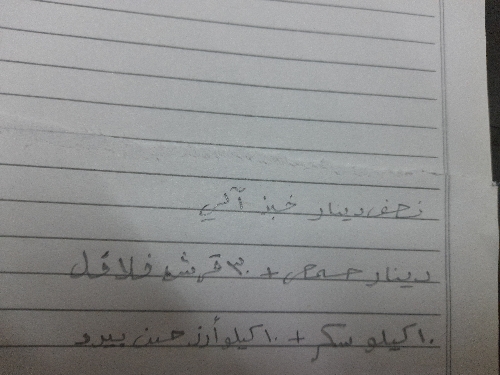 نصف دينار خبز آلي
دينار حمص + ٣٠ قرش فلافل
١٠ كيلو سكر + ١٠ كيلو أرز